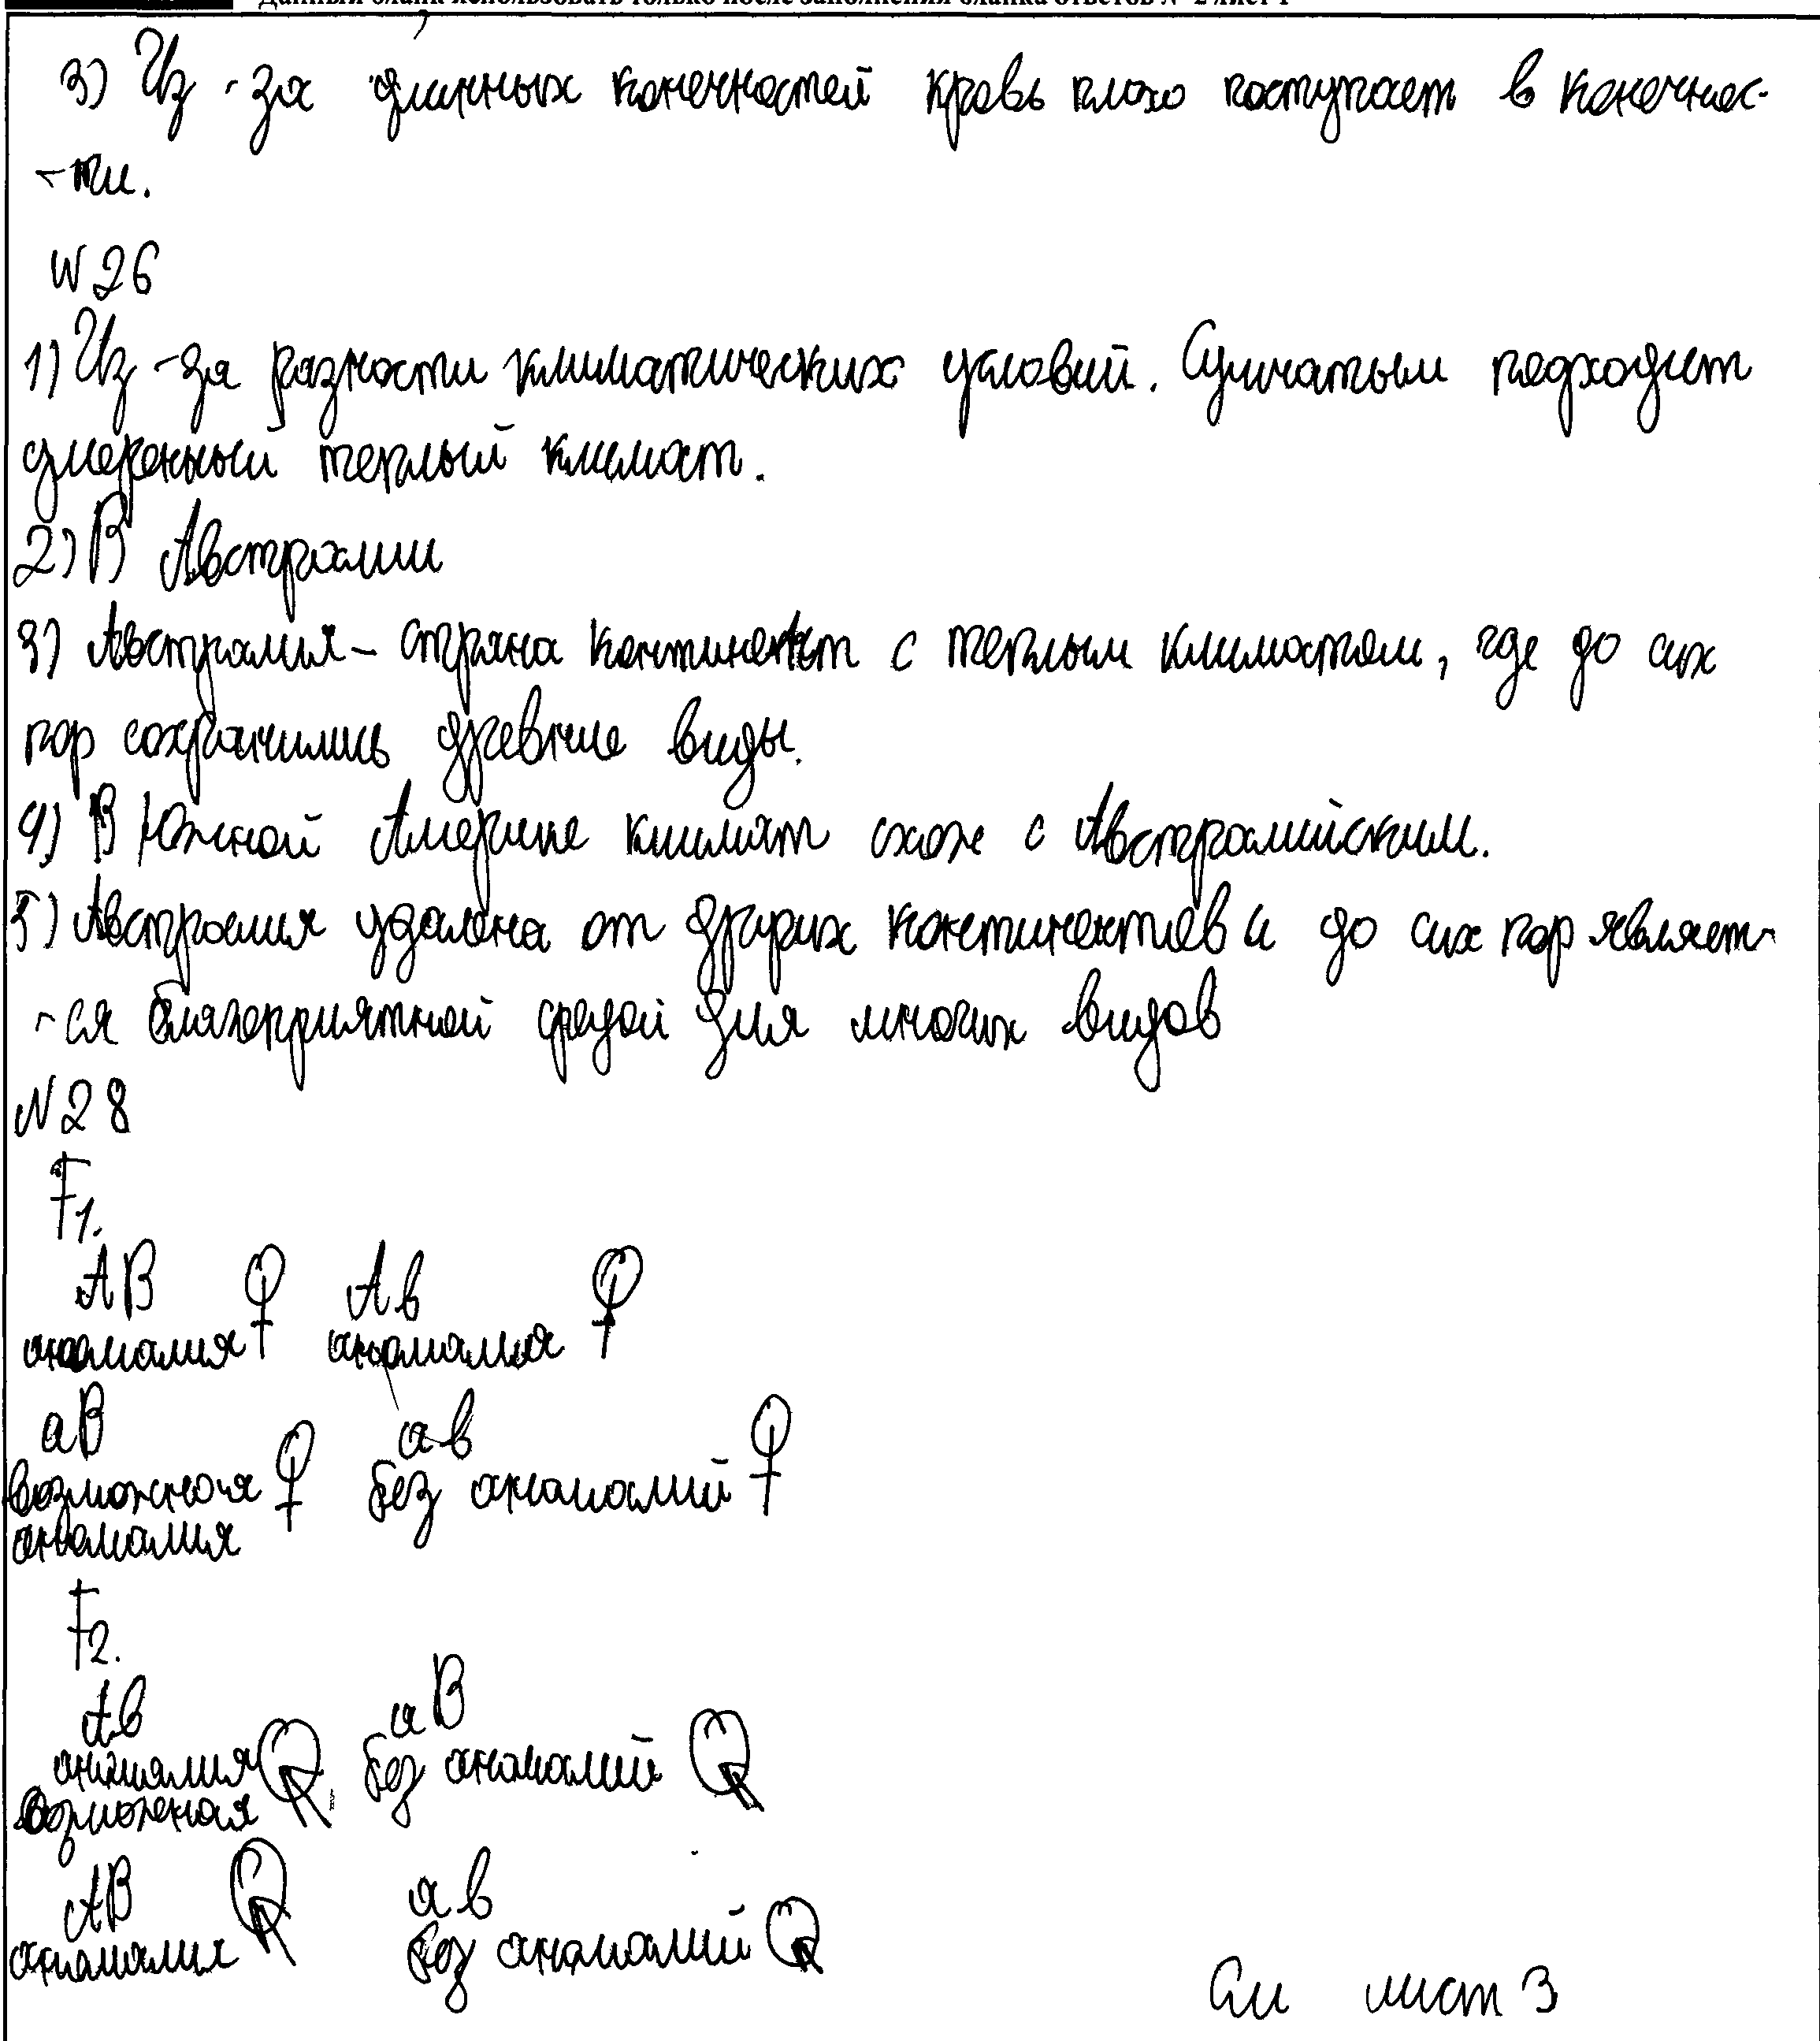 Данный бланк использовать только после заполнения бланка ответов № 2 лист 1
3) Из-за длинных конечностей кровь плохо поступает в конечнос-
-ти.
№26
1) Из-за разности климатических условий. Сумчатым подходит
умеренный теплый климат.
2) В Австралии
3) Австралия – страна континент с теплым климатом, где до сих
пор сохранились древние виды.
4) В Южной Америке климат схож с Австралийским.
5) Австралия удалена от других континентов и до сих пор являет-
-ся благоприятной средой для многих видов
№28
F1.
АВ ♀ Ав ♀
аномалия аномалия
аВ ♀ ав ♀
возможная без аномалий
аномалия
F2.
Ав аВ
аномалия без аномалий
возможная
АВ ав
аномалия без аномалий
См лист 3